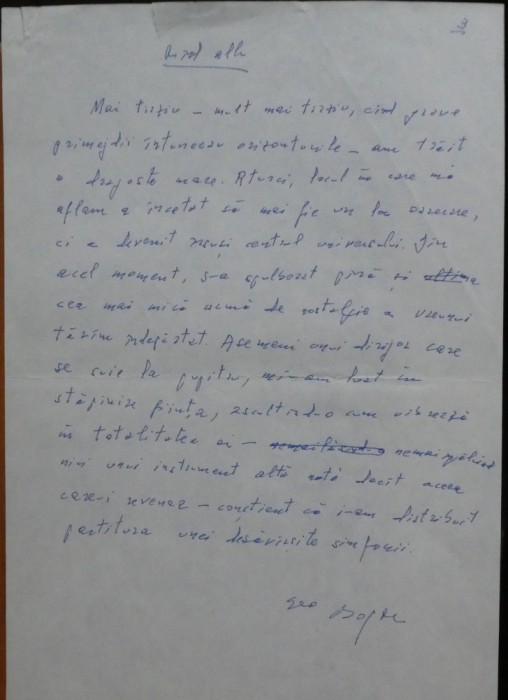 9
alb
Mai tîrziu – mult mai tîrziu, cînd grave
primejdii întunecau orizonturile – am trăit
o dragoste mare. Atunci, locul în care mă
aflam a încetat să mai fie un loc oarecare,
ci a devenit însuși centrul universului. Din
acel moment, s-a spulberat pînă și ultima
cea mai mică urmă de nostalgie a vreunui
tărîm îndepărtat. Asemeni unui dirijor care
se suie la pupitru, mi-am luat în
stăpînire ființa, ascultînd-o cum vibrează
în totalitatea ei –
nici unui instrument altă notă decît aceea
care-i revenea – conștient că i-am distribuit
partitura unei desăvîrșite simfonii.
Geo Bogza